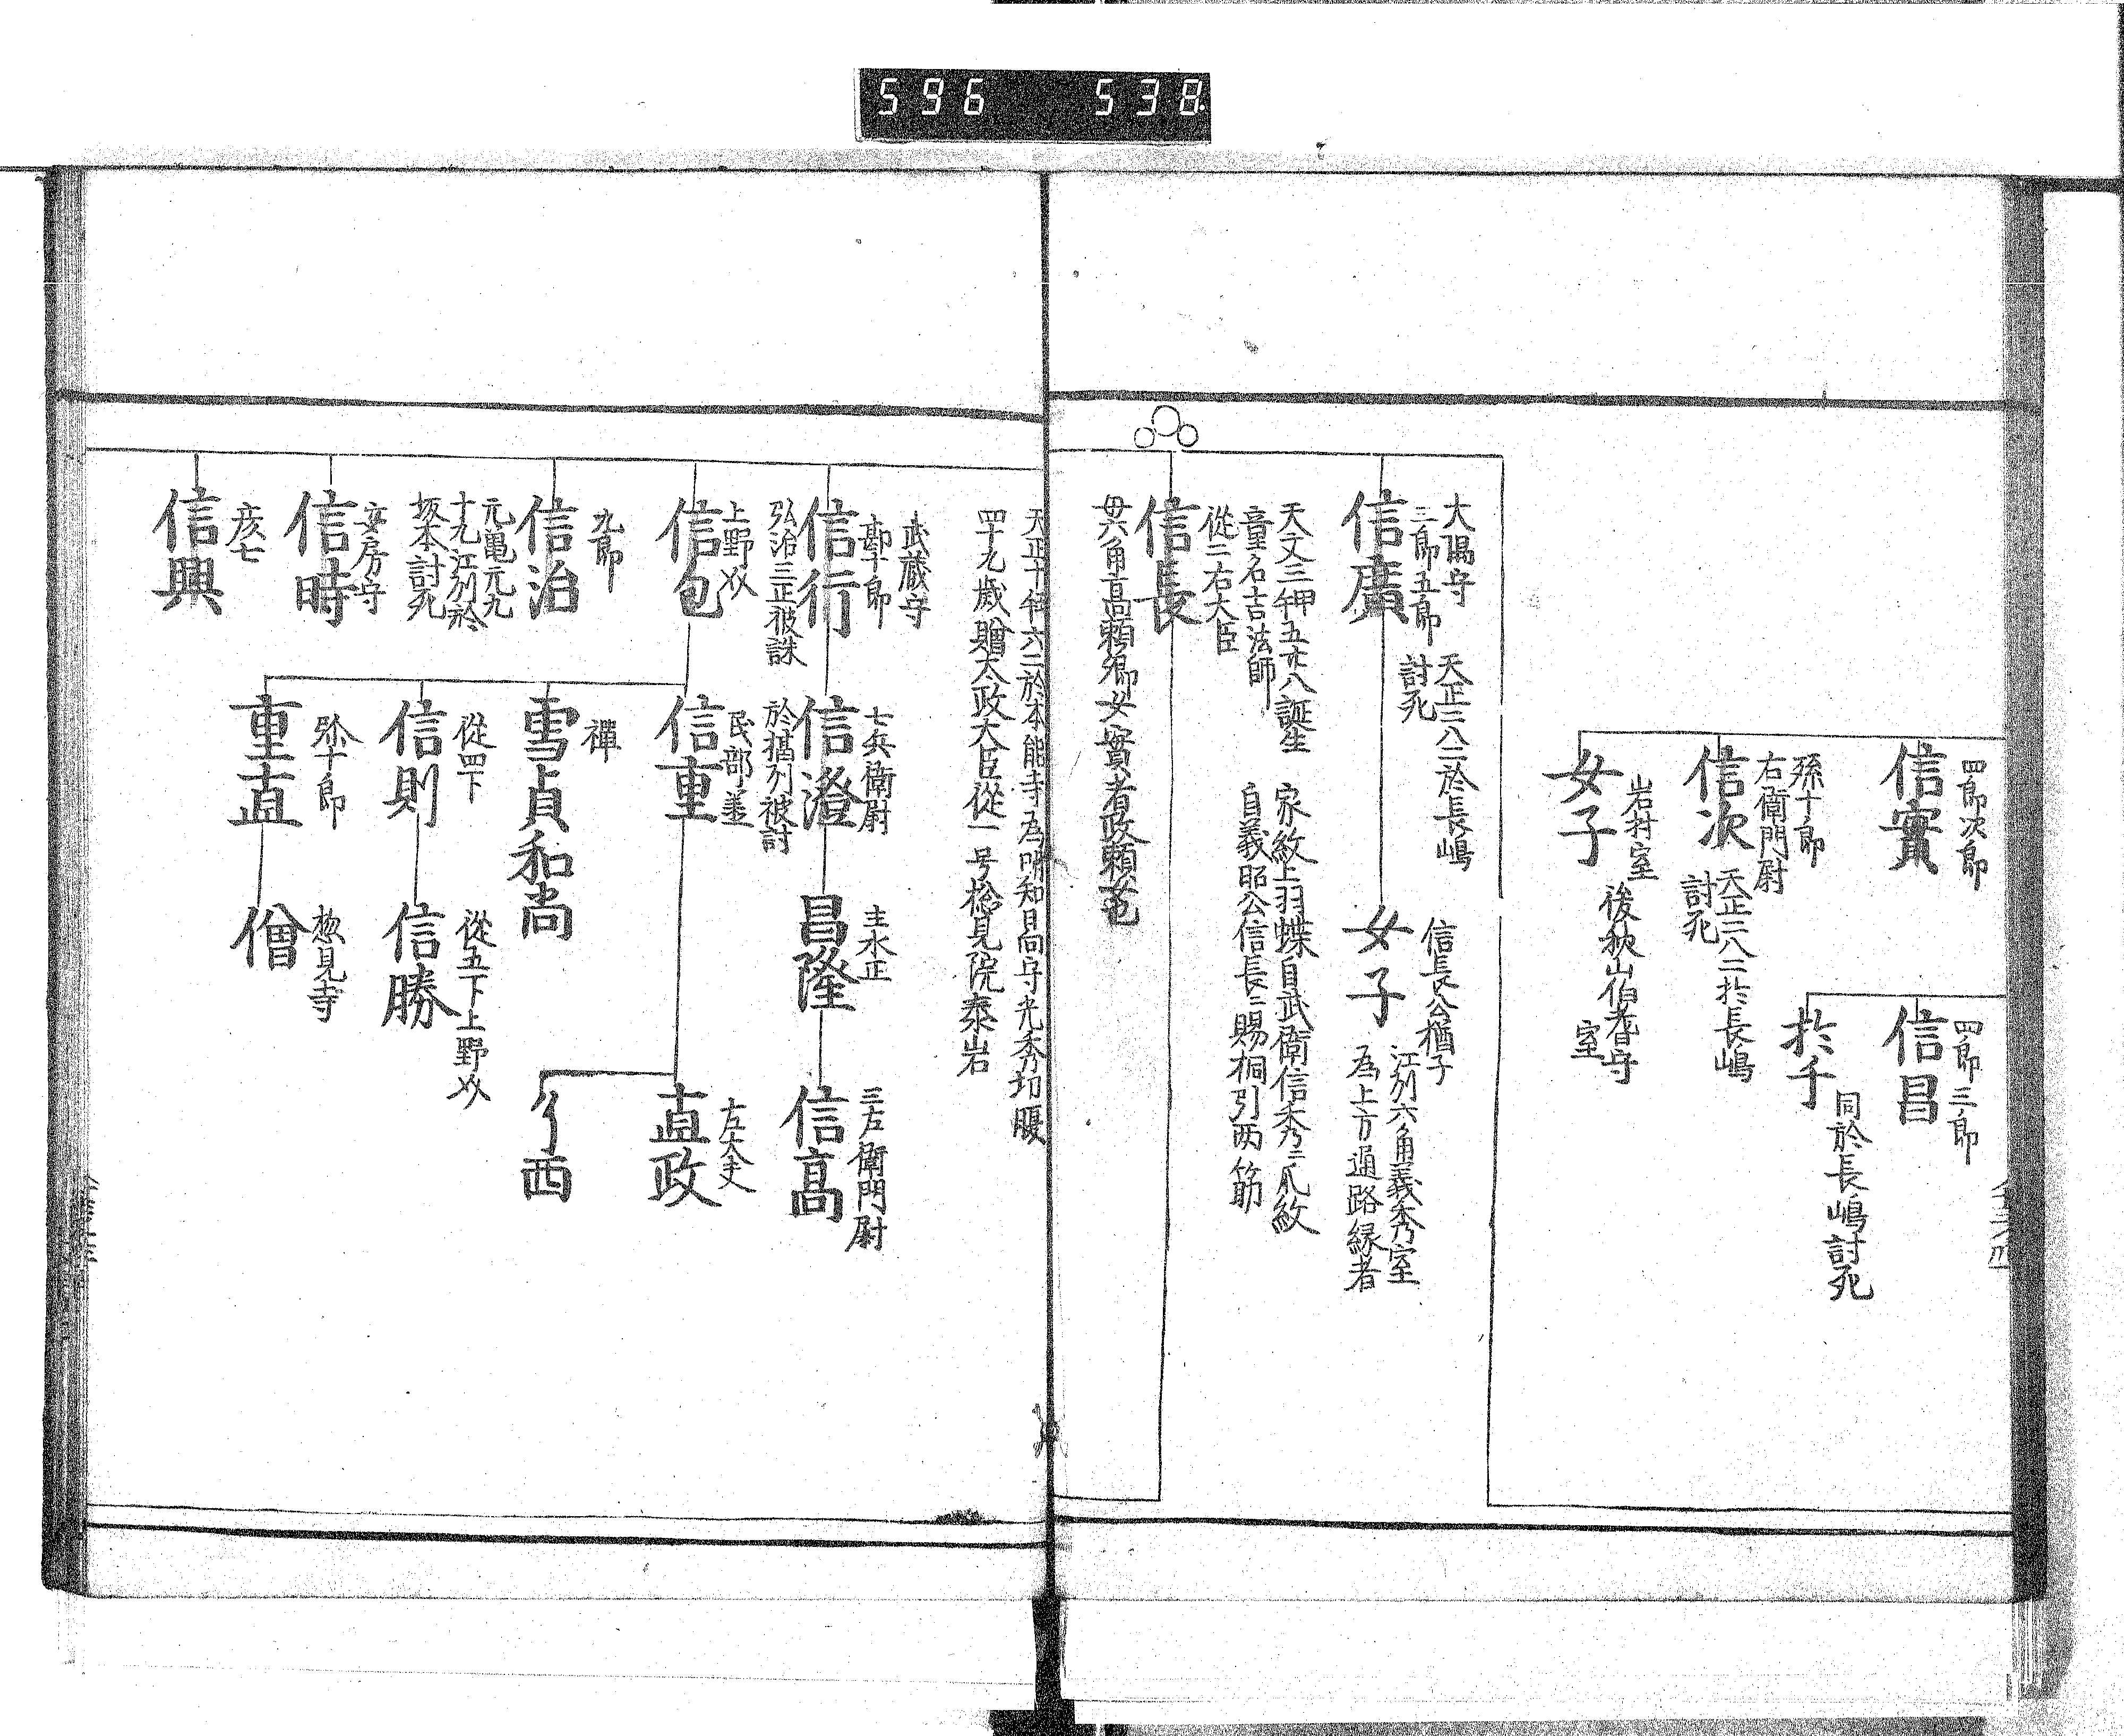 596 538
四郎次郎
信實
四郎三郎
信昌
於千
同於長嶋討死
孫十郎
右衛門尉
信次
天正二八二於長嶋
討死
岩村室
女子
後秋山伯耆守
室
大隅守
三郎五郎
信廣
天正二八二於長嶋
討死
信長公猶子
女子
江州六角義秀室
為上方通路縁者
天文三甲午五廿八誕生
童名吉法師
從二右大臣
信長
家紋上羽蝶自武衛信秀ニ爪紋
自義昭公信長ニ賜桐引两筋
母六角高頼卿女實者政頼女也
天正十年六二於本能寺為明知日向守光秀切腹
四十九歳贈太政大臣從一号惣見院泰岩
武蔵守
勘十郎
信行
弘治三正被誅
七兵衛尉
信澄
於摂州被討
主水正
昌隆
三左衛門尉
信高
上野
信包
民部
信重
左
直政
西
禪
雪貞和尚
從四下
信則
從五下上野
信勝
弥十郎
重直
惣見寺
僧
九郎
信治
元亀元九
十九江州於
坂本討死
安房守
信時
彦七
信興